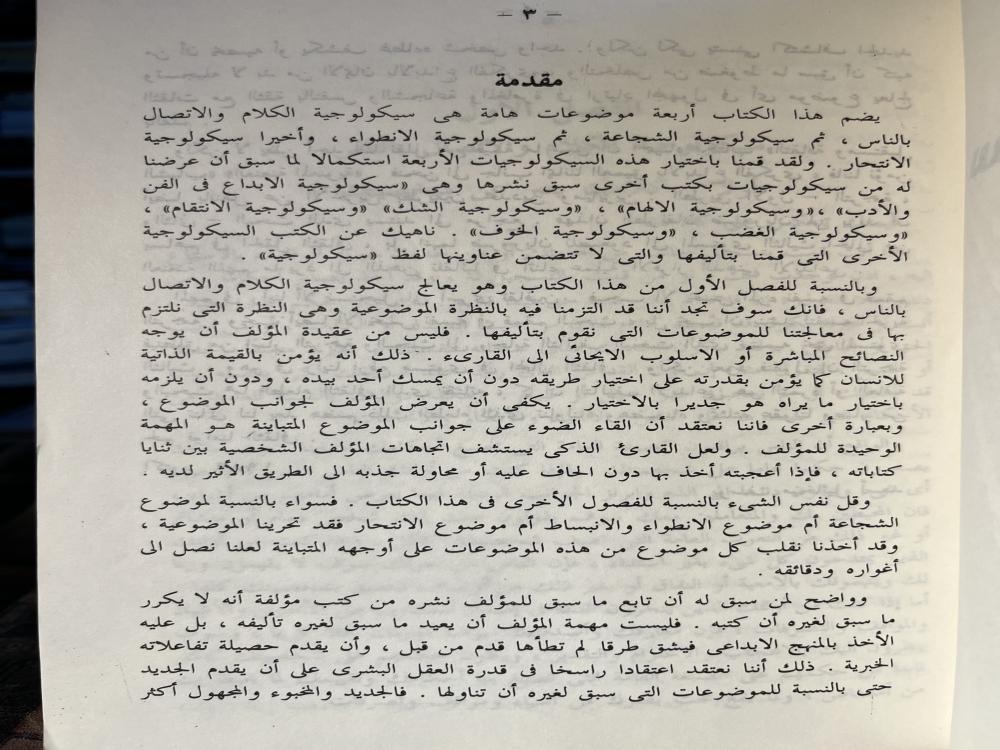 — ٣ —
مقدمة
يضم هذا الكتاب أربعة موضوعات هامة هى سيكولوجية الكلام والاتصال
بالناس ، ثم سيكولوجية الشجاعة ، ثم سيكولوجية الانطواء ، وأخيرا سيكولوجية
الانتحار . ولقد قمنا باختيار هذه السيكولوجيات الأربعة استكمالا لما سبق أن عرضنا
له من سيكولوجيات بكتب أخرى سبق نشرها وهى «سيكولوجية الابداع فى الفن
والأدب» ،«وسيكولوجية الالهام» ، «وسيكولوجية الشك» «وسيكولوجية الانتقام» ،
«وسيكولوجية الغضب ، «وسيكولوجية الخوف» . ناهيك عن الكتب السيكولوجية
الأخرى التى قمنا بتأليفها والتى لا تتضمن عناوينها لفظ «سيكولوجية» .
وبالنسبة للفصل الأول من هذا الكتاب وهو يعالج سيكولوجية الكلام والاتصال
بالناس ، فانك سوف تجد أننا قد التزمنا فيه بالنظرة الموضوعية وهى النظرة التى نلتزم
بها فى معالجتنا للموضوعات التى نقوم بتأليفها . فليس من عقيدة المؤلف أن يوجه
النصائح المباشرة أو الاسلوب الايحائى الى القارىء . ذلك أنه يؤمن بالقيمة الذاتية
للانسان كما يؤمن بقدرته على اختيار طريقه دون أن يمسك أحد بيده ، ودون أن يلزمه
باختيار ما يراه هو جديرا بالاختيار . يكفى أن يعرض المؤلف لجوانب الموضوع ،
وبعبارة أخرى فاننا نعتقد أن القاء الضوء على جوانب الموضوع المتباينة هو المهمة
الوحيدة للمؤلف . ولعل القارئ الذكى يستشف اتجاهات المؤلف الشخصية بين ثنايا
كتاباته ، فإذا أعجبته أخذ بها دون الحاف عليه أو محاولة جذبه الى الطريق الأثير لديه .
وقل نفس الشىء بالنسبة للفصول الأخرى فى هذا الكتاب . فسواء بالنسبة لموضوع
الشجاعة أم موضوع الانطواء والانبساط أم موضوع الانتحار فقد تحرينا الموضوعية ،
وقد أخذنا نقلب كل موضوع من هذه الموضوعات على أوجهه المتباينة لعلنا نصل الى
أغواره ودقائقه .
وواضح لمن سبق له أن تابع ما سبق للمؤلف نشره من كتب مؤلفة أنه لا يكرر
ما سبق لغيره أن كتبه . فليست مهمة المؤلف أن يعيد ما سبق لغيره تأليفه ، بل عليه
الأخذ بالمنهج الابداعى فيشق طرقا لم تطأها قدم من قبل ، وأن يقدم حصيلة تفاعلاته
الخبرية . ذلك أننا نعتقد اعتقادا راسخا فى قدرة العقل البشرى على أن يقدم الجديد
حتى بالنسبة للموضوعات التى سبق لغيره أن تناولها . فالجديد والمخبوء والمجهول أكثر